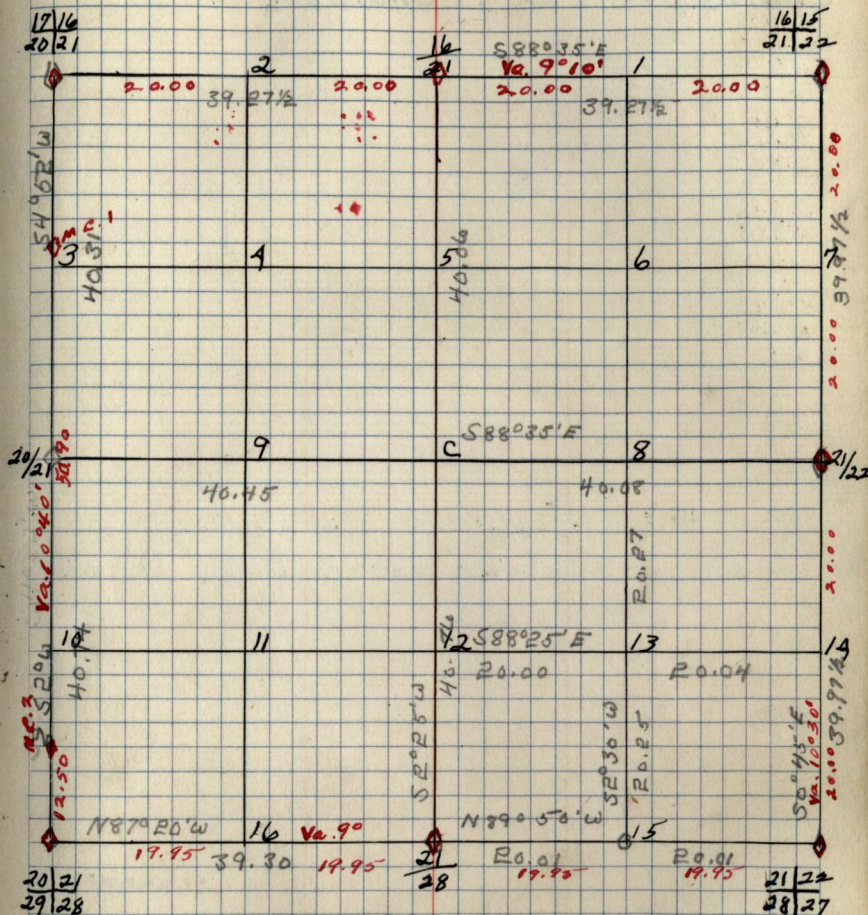 17 16
20 21
16 15
21 22
16
21
2
S88°35'E
Va. 9°10'
1
20.00
20.00
20.00
20.00
39.27½
39.27½
S4°02'W
20.00
M C. 1
3
4
5
6
7
40.31
40.06
39.97½
20.00
20/21
9
C
S88°35'E
8
21/22
50.90
40.45
40.08
Va. 10°40'
20.27
20.00
10
11
12
S88°25'E
13
14
20.00
20.04
S2°W
S2°25'W
S2°30'W
20.25
S0°45'E
Va. 10°30'
20.00
39.97½
M.C. 2
12.50
N87°20'W
16
Va. 9°
N89°50'W
15
19.95
39.30
19.95
20.01
19.95
20.01
19.95
20 21
29 28
21
28
21 22
28 27